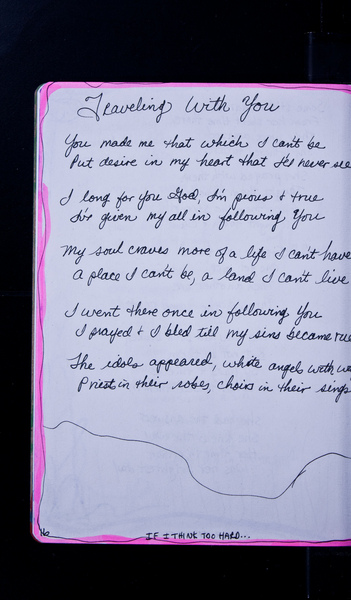 Traveling With You
You made me that which I can't be
Put desire in my heart that I'd never see
I long for you God, I'm pious & true
I've given my all in following You
My soul craves more of a life I can't have
a place I can't be, a land I can't live
I went there once in following You
I prayed & I bled till my sins became
The idols appeared, white angels with
Priest in their robes, choirs in their
IF I THINK TOO HARD...